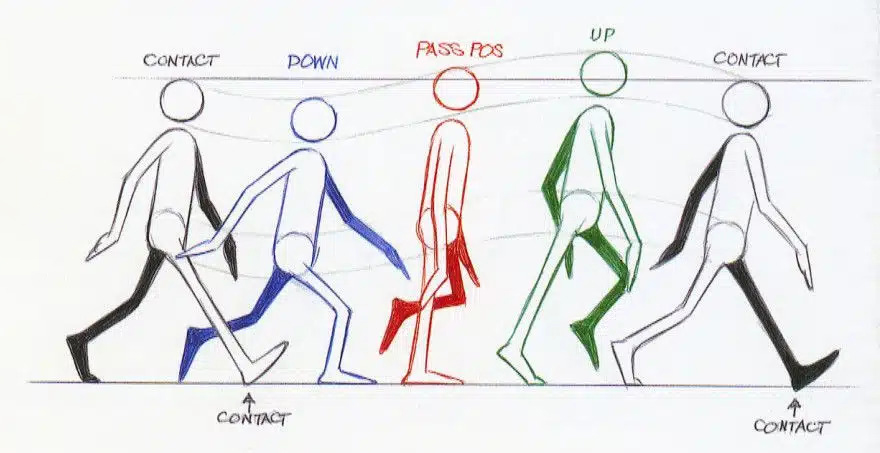 CONTACT
DOWN
PASS POS
UP
CONTACT
CONTACT
CONTACT